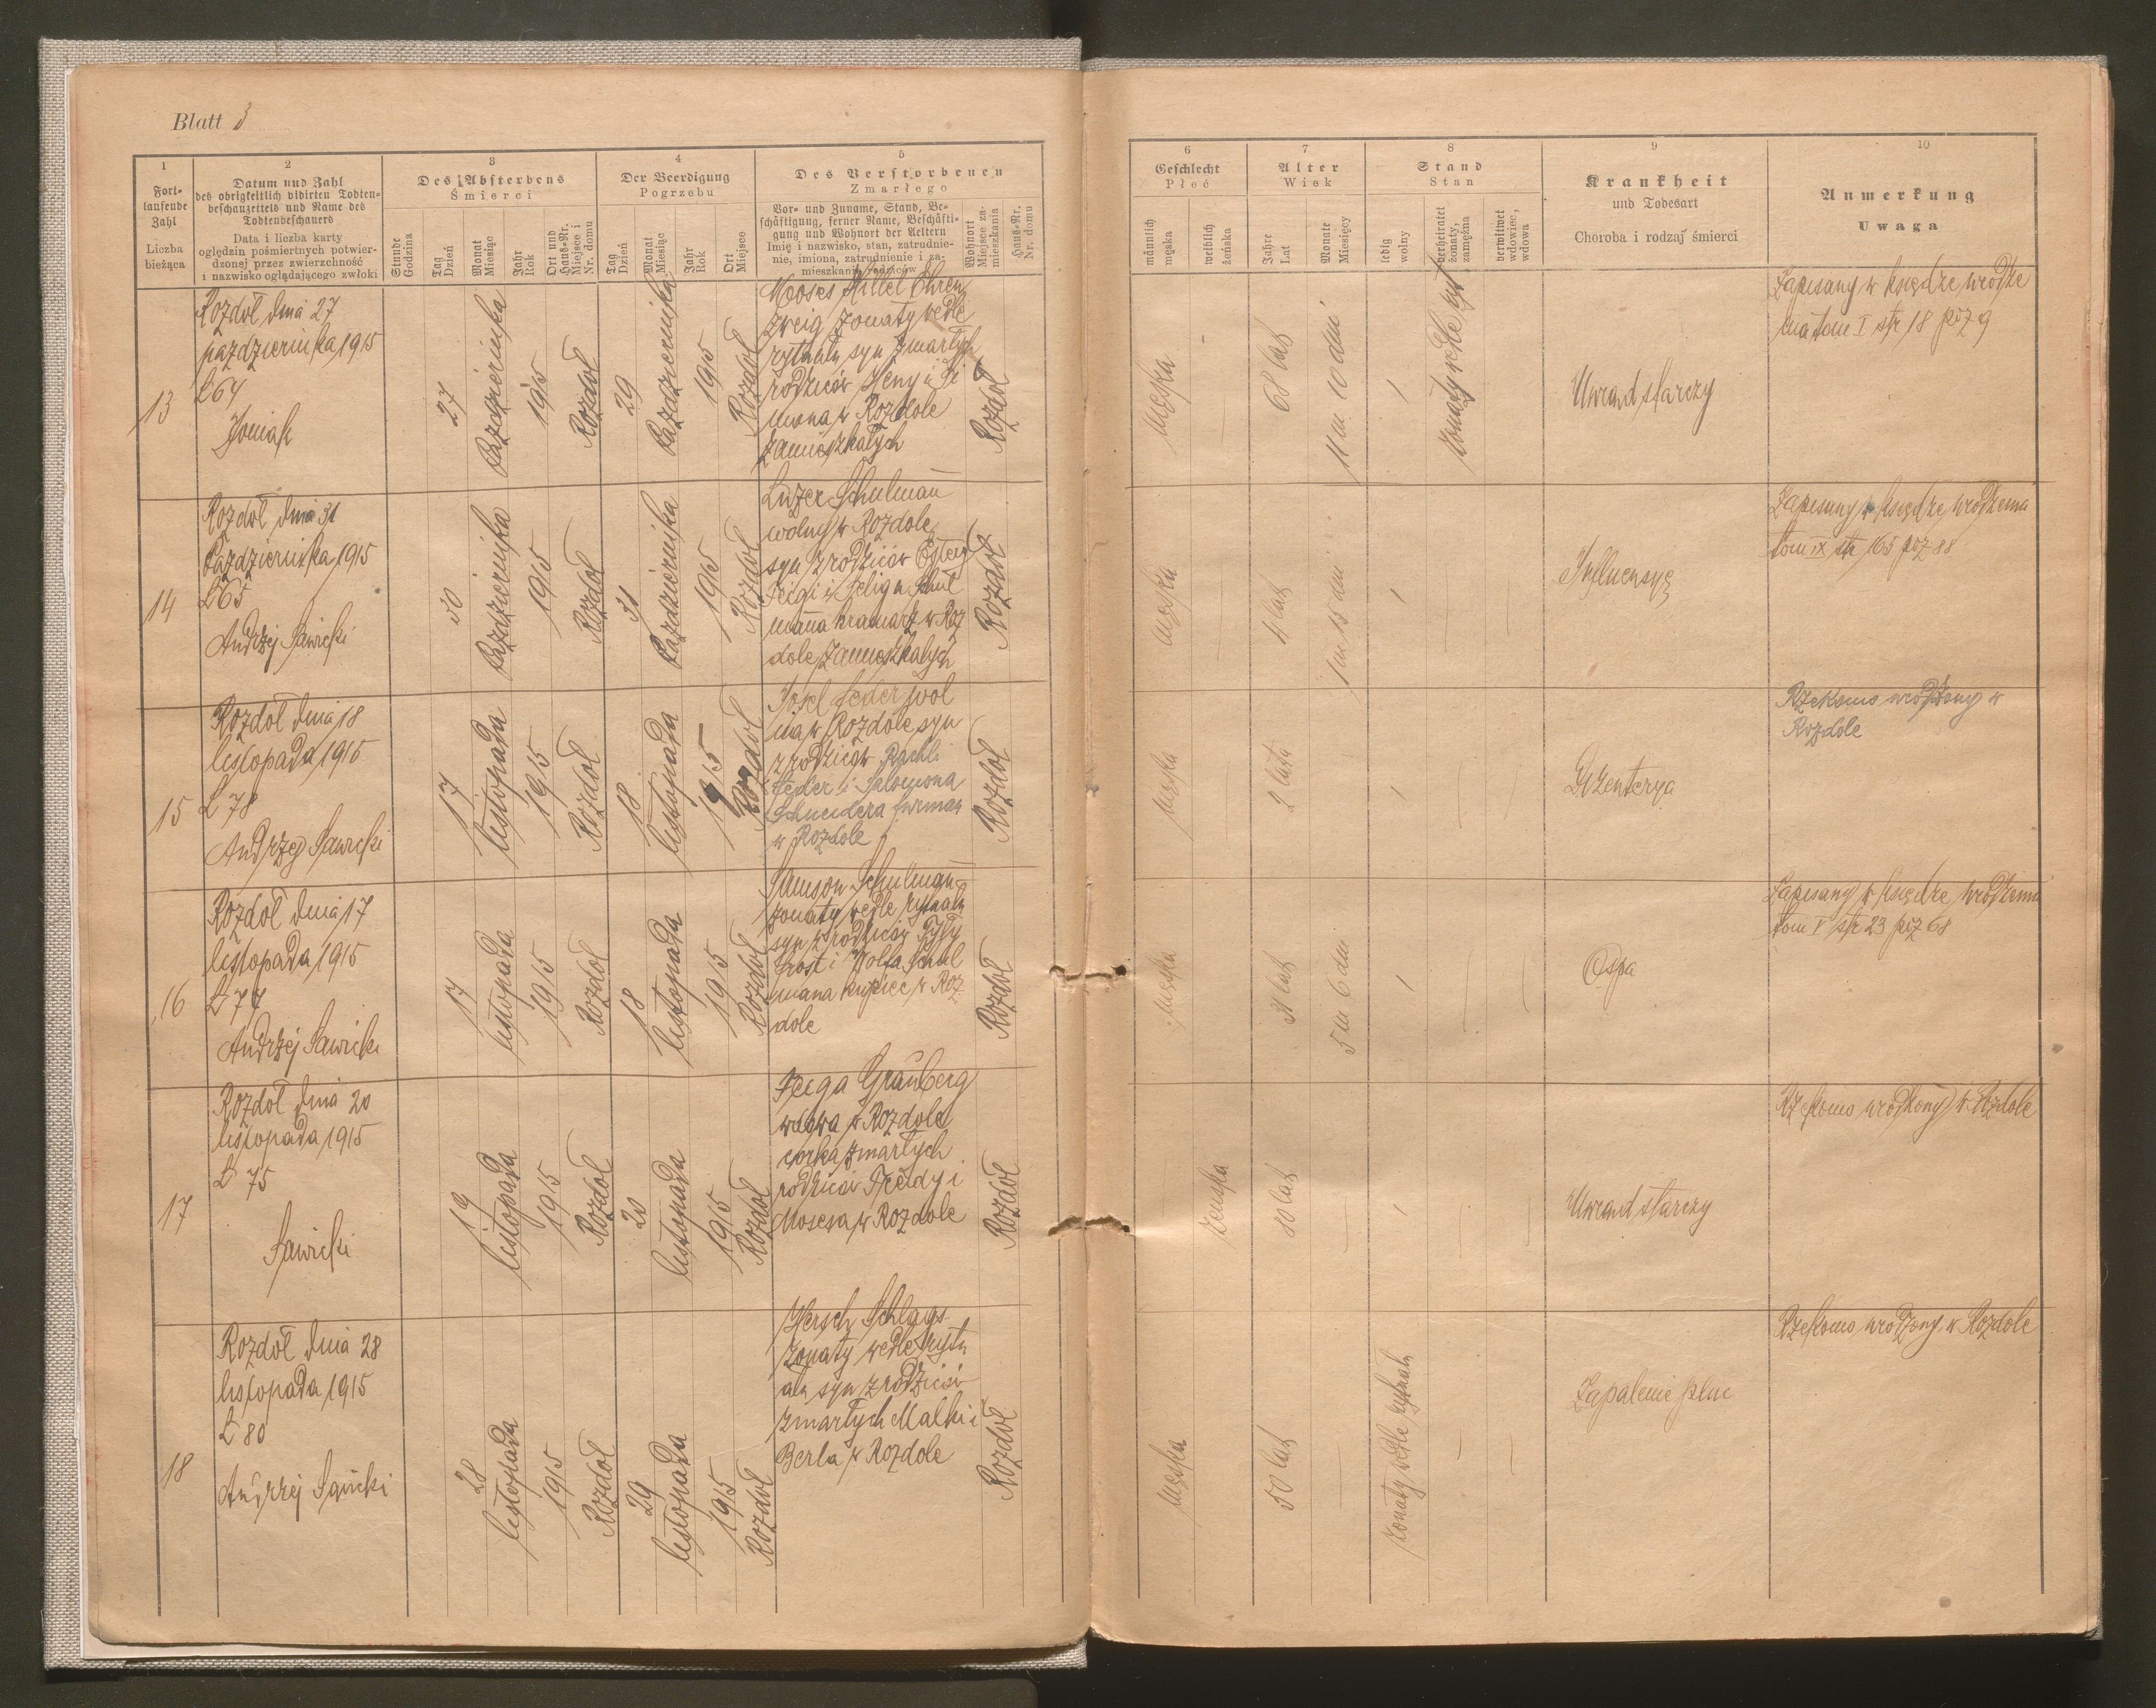 Blatt 3
1
Fort-
laufende
Zahl
Liczba
bieżąca
2
Datum und Zahl
des obrigkeitlich vidirten Todten-
beschauzettels und Name des
Todtenbeschauers
Data i liczba karty
oględzin pośmiertnych potwier-
dzonej przez zwierzchność
i nazwisko oglądającego zwłoki
3
Des Absterbens
Śmierci
Stunde
Godzina
Tag
Dzień
Monat
Miesiąc
Jahr
Rok
Ort und
Haus-Nr.
Miejsce i
Nr. domu
4
Der Beerdigung
Pogrzebu
Tag
Dzień
Monat
Miesiąc
Jahr
Rok
Ort
Miejsce
5
Des Verstorbenen
Zmarłego
Vor- und Zuname, Stand, Be-
schäftigung, ferner Name, Beschäfti-
gung und Wohnort der Aeltern
Imię i nazwisko, stan, zatrudnie-
nie, imiona, zatrudnienie i za-
mieszkanie rodziców
Wohnort
Miejsce za-
mieszkania
Haus-Nr.
Nr. domu
6
Geschlecht
Płeć
männlich
męska
weiblich
żeńska
7
Alter
Wiek
Jahre
Lat
Monate
Miesięcy
8
Stand
Stan
ledig
wolny
verheiratet
żonaty,
zamężna
verwitwet
wdowiec,
wdowa
9
Krankheit
und Todesart
Choroba i rodzaj śmierci
10
Anmerkung
Uwaga
13
Rozdół dnia 27
pazdziernika 1915
L 64
27
Pazdziernika
1915
Rozdół
29
Pazdziernika
1915
Rozdół
Moses Hillel Ehren
zweig żonaty wedle
rytuału syn zmarłych
rodziców Heny i Si
mona w Rozdole
zamieszkałych
Rozdół
męska
68 lat
11 m 10 dni
żonaty wedle ryt
Uwiąd starczy
Zapisany w księdze urodze
nia tom I str 18 poz 9
14
Rozdół dnia 31
Pazdziernika 1915
L 65
Andrzej Sawicki
30
Pazdziernika
1915
Rozdół
31
Pazdziernika
1915
Rozdół
Luzer Schulman
wolny w Rozdole
syn z rodziców Ester
Feigi i Seliga Schul
mana kramarz w Roz
dole zamieszkałych
Rozdół
męska
4 lat
1 m 15 dni
Influensyę
Zapisany w księdze urodzenia
tom IX str 165 poz 88
15
Rozdół dnia 18
listopada 1915
L 78
Andrzej Sawicki
17
listopada
1915
Rozdół
18
listopada
1915
Rozdół
Josel Feder wol
na w Rozdole syn
z rodziców Rachli
Feder i Salomona
Schneidera furman
w Rozdole
Rozdół
męska
2 lata
Dyzenterya
Rzekomo urodzony w
Rozdole
16
Rozdół dnia 17
listopada 1915
L 77
Andrzej Sawicki
17
listopada
1915
Rozdół
18
listopada
1915
Rozdół
Samson Schulman
żonaty wedle rytuału
syn z rodziców
Prost i Wolfa Schul
mana kupiec w Roz
dole
Rozdół
męska
31 lat
5 m 6 dni
Ospa
Zapisany w księdze urodzenia
tom V str 23 poz 68
17
Rozdół dnia 20
listopada 1915
L 75
Sawicki
19
listopada
1915
Rozdół
20
listopada
1915
Rozdół
Feiga Grünberg
wdowa w Rozdole
córka zmarłych
rodziców Freidy i
Mosesa w Rozdole
Rozdół
żeńska
80 lat
Uwiąd starczy
Rzekomo urodzony w Rozdole
18
Rozdół dnia 28
listopada 1915
L 80
Andrzej Sawicki
28
listopada
1915
Rozdół
29
listopada
1915
Rozdół
Hersch
żonaty wedle rytu
ału syn z rodziców
zmarłych Malki i
Berla w Rozdole
Rozdół
męska
50 lat
żonaty wedle rytuału
Zapalenie płuc
Rzekomo urodzony w Rozdole